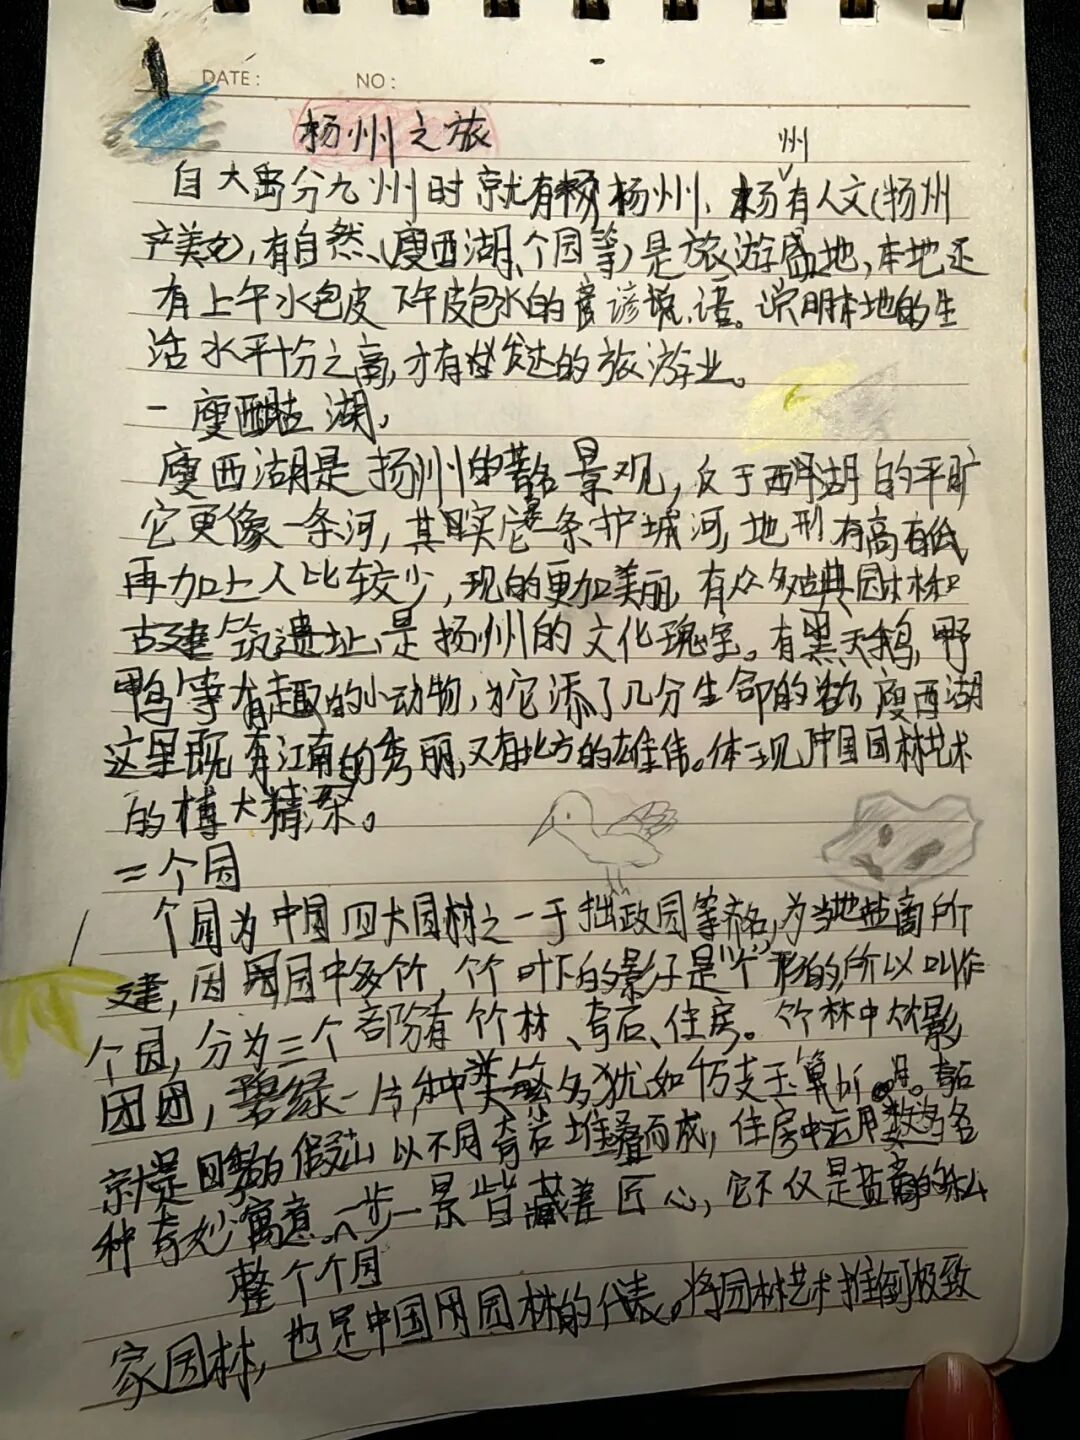 DATE: NO:
杨州之旅
州
自大禹分九州时就有杨州、杨有人文(扬州
产美女),有自然(瘦西湖、个园等)是旅游盛地,本地还
有上午水包皮 下午皮包水的谚语。说明本地的生
活水平十分之高,才有发达的旅游业。
一 瘦西湖、
瘦西湖是扬州的著名景观,反于西湖的平旷
它更像一条河,其实它是一条护城河,地形有高有低
再加上人比较少,现的更加美丽 有众多古典园林和
古建筑遗址、是扬州的文化瑰宝。有黑天鹅,野
鸭等有趣的小动物,为它添了几分生命的 瘦西湖
这里既有江南的秀丽,又有北方的雄伟。体现中国园林艺术
的博大精深。
二个园
个园为中国四大园林之一于拙政园等齐名,为当地盐商所
建,因园中多竹,个竹叶下的影子是“个”形的,所以叫作
个园,分为三个部份有竹林、奇石、住房。竹林中竹影
团团,碧绿一片,种类繁多犹如千万支玉 奇石
就是四季的假山以不同奇石堆叠而成,住房中运用数多名
种奇妙寓意。一步一景皆藏差匠心,它不仅是盐商的私
整个个园
家园林,也是中国园林的代表。将园林艺术推到极致